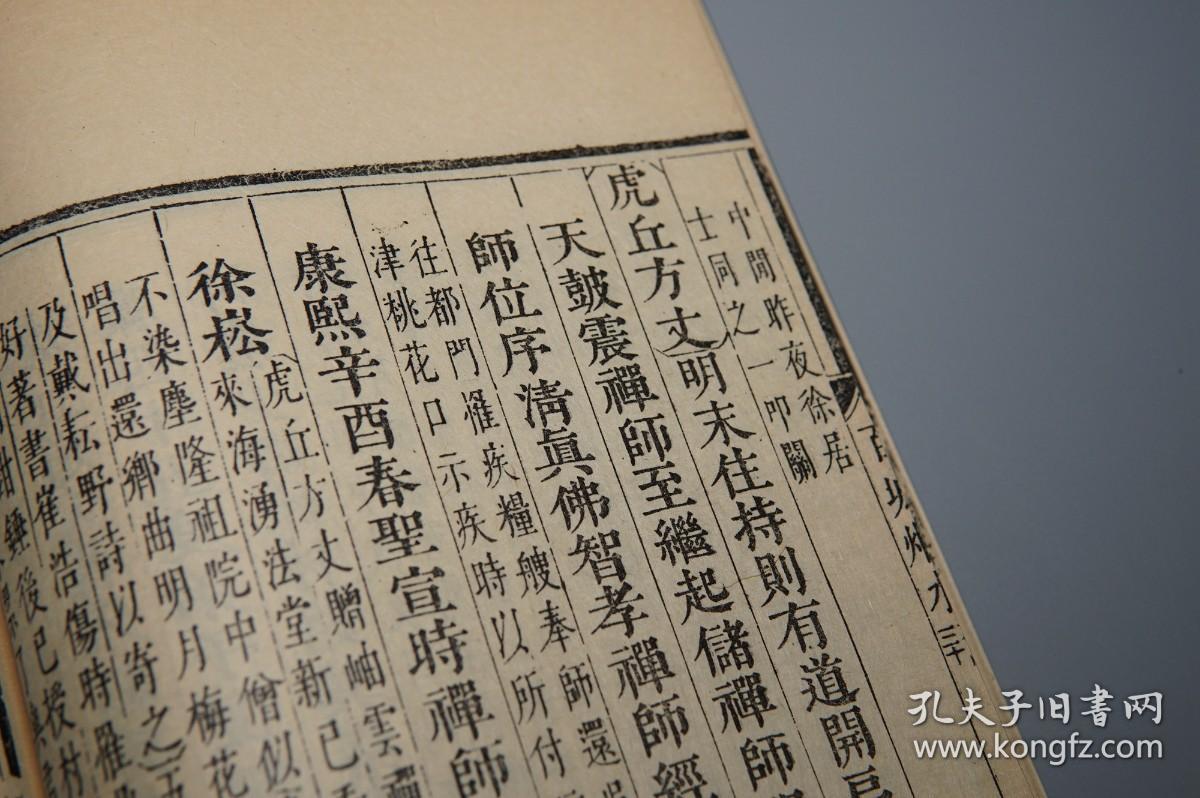 中閒昨夜徐居
士同之一叩關
虎丘方丈明末住持則有道開
天皷震禪師至繼起儲禪師
師位序清真佛智孝禪師經
往都門罹疾糧艘奉師還
津桃花口示疾時以所付
康熙辛酉春聖宣時禪師
徐崧虎丘方丈贈岫雲禪
來海湧法堂新已
不染塵隆祖院中僧似
唱出還鄉曲明月梅花
及戴耘野詩以寄之
好著書崔浩傷時罹
後已授村
三十
孔夫子旧书网
www.kongfz.com